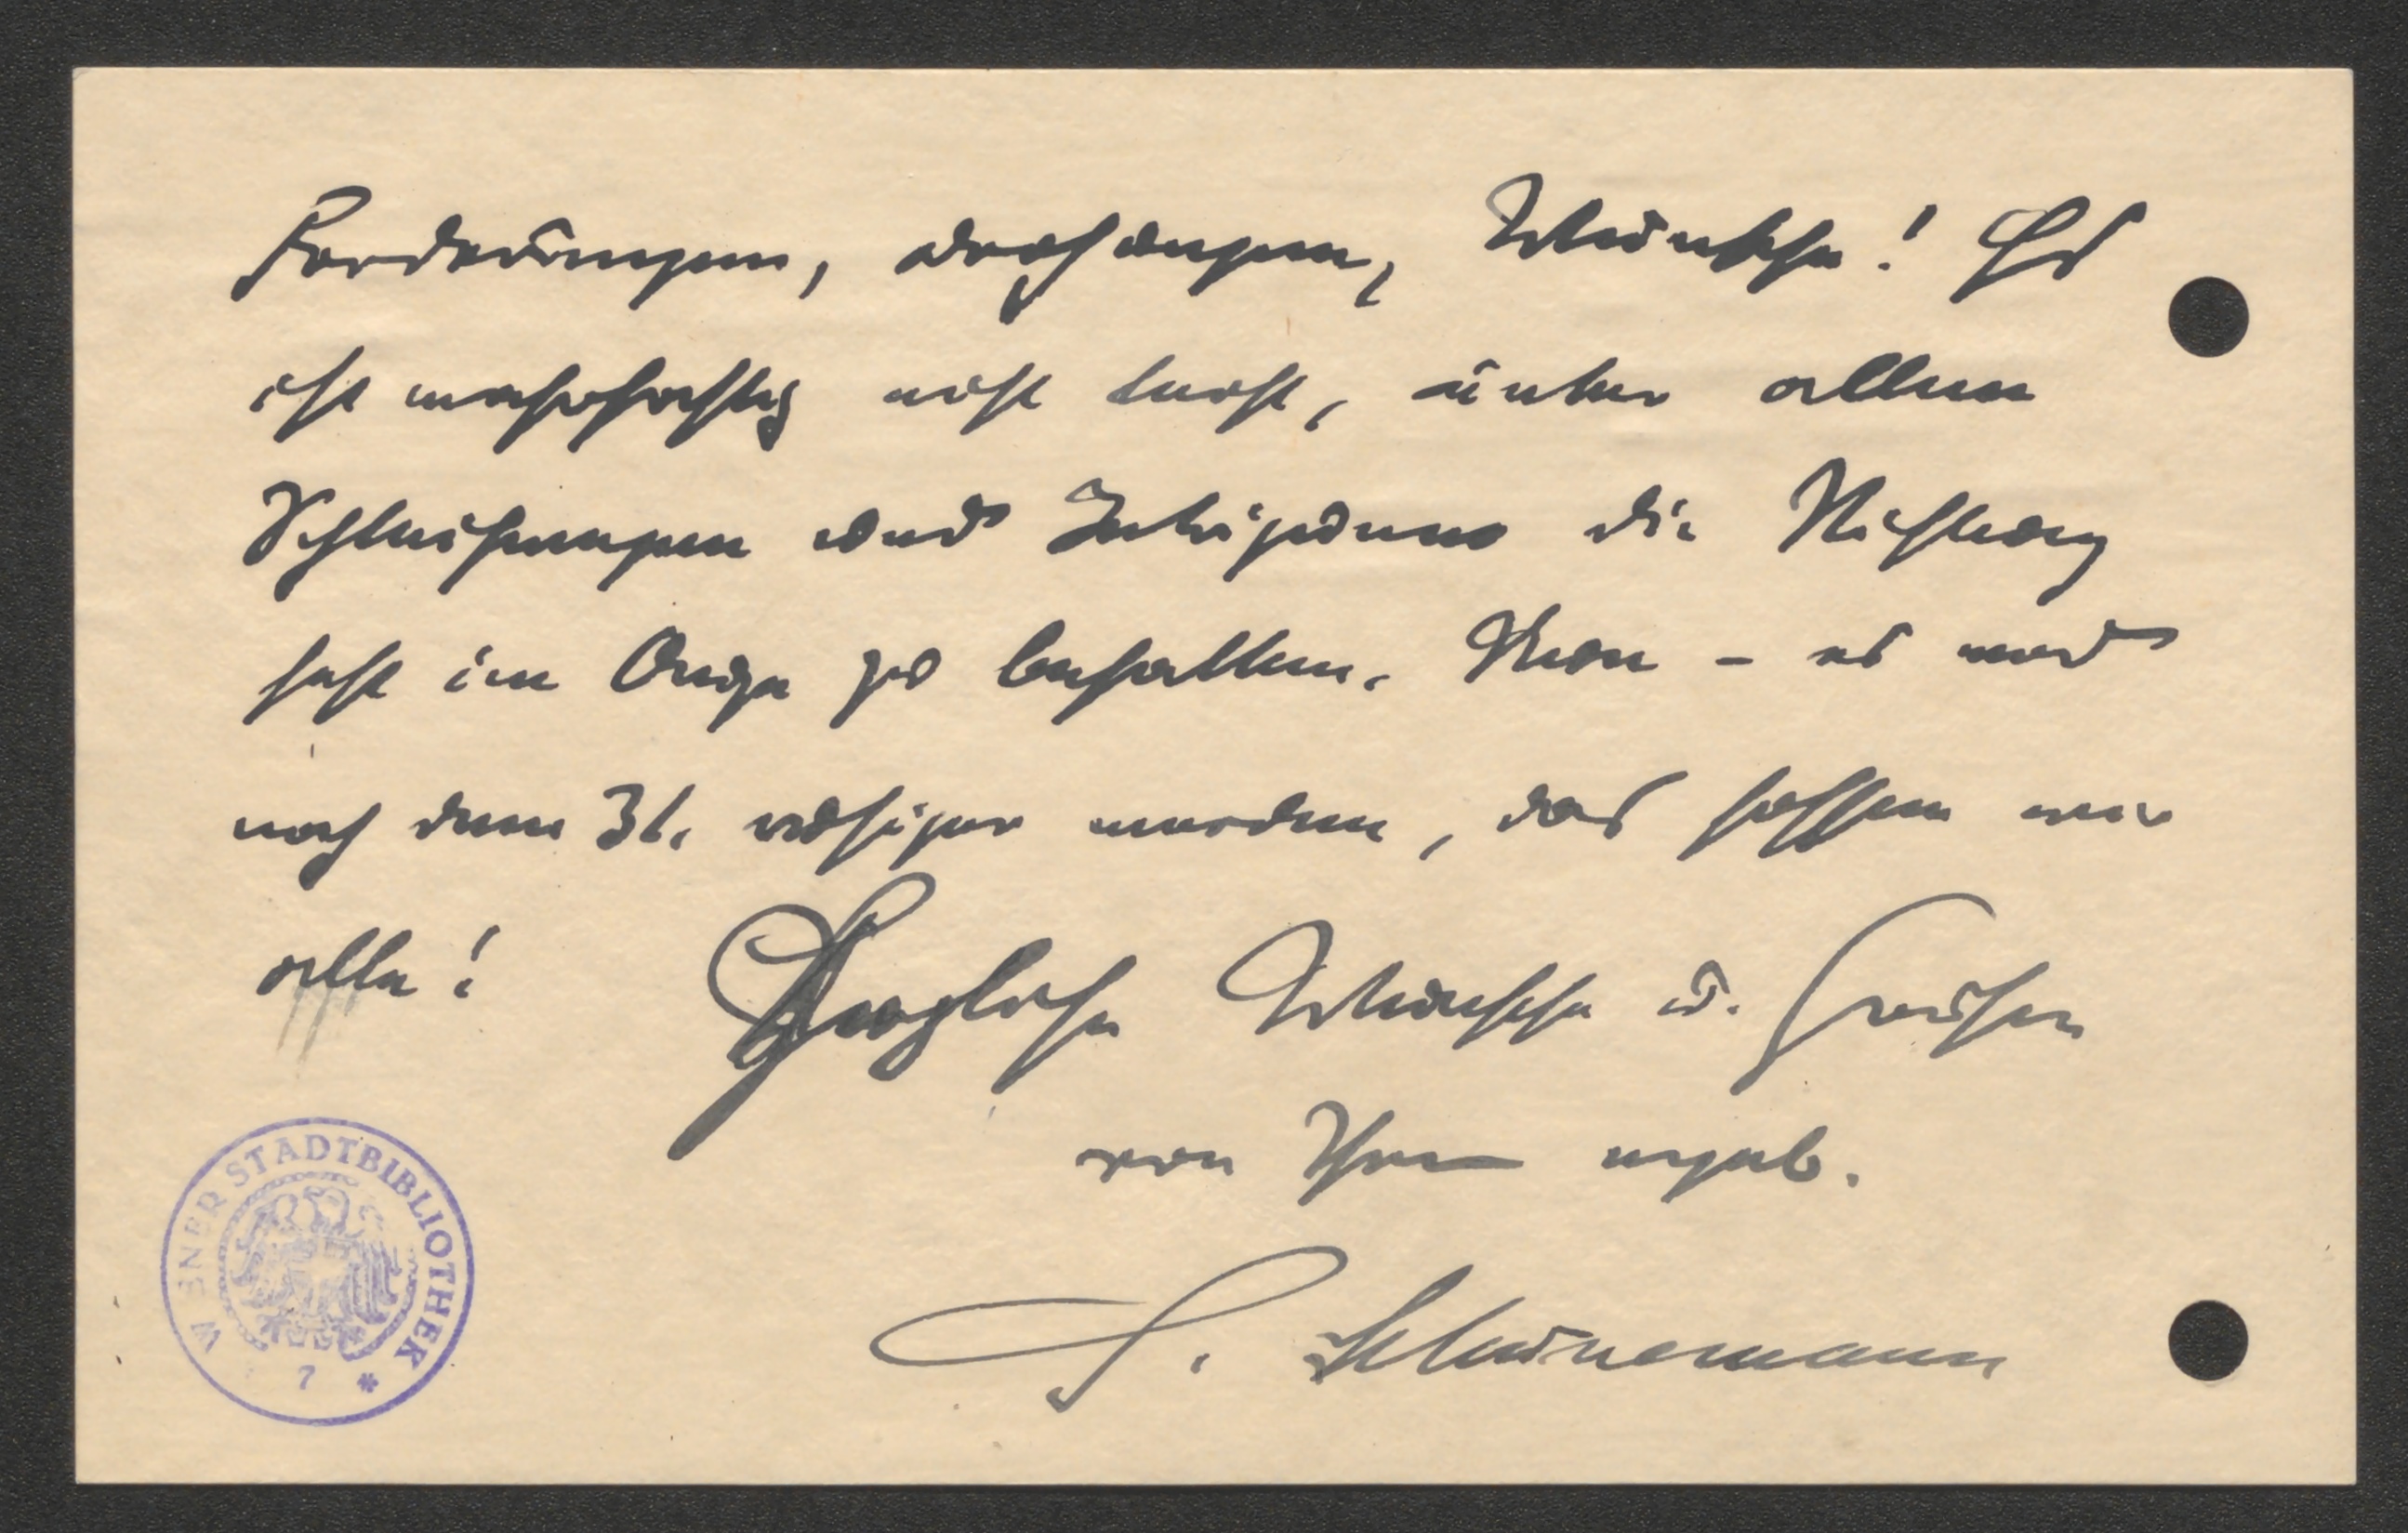 Forderungen, Drohungen, Wünsche! Es
ist wahrhaftig nicht leicht, unter allen
Schleichungen und Intriguen die Richtung
fest im Auge zu behalten. Nun – es wird
nach dem 31. ruhiger werden, das hoffen wir
alle! Herzliche Wünsche u. Grüße
von Ihrem ergeb.
G. Schünemann
WIENER STADTBIBLIOTHEK
7 *